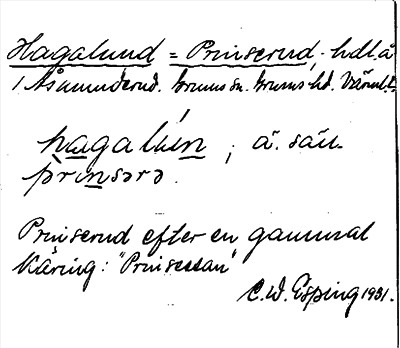 Hagalund = Prinserud, hdl. å
1 Åsmunderud. Grums sn. Grums hd. Värml.
hagalun ; ä. sän.
prinsərə.
Prinserud efter en gammal
käring: "Prinsessan"
C.W. Esping 1931.